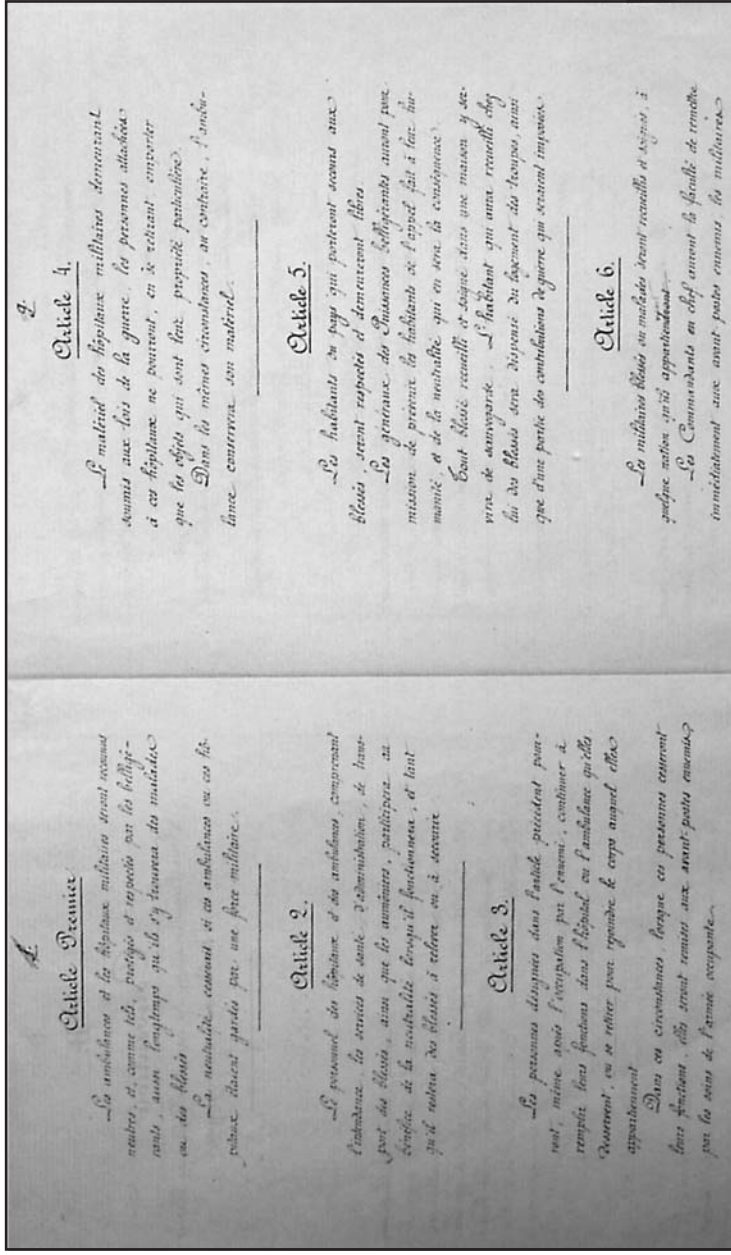 1.
Article Premier
Les ambulances et les hôpitaux militaires seront reconnus
neutres, et, comme tels, protégés et respectés par les belligé-
rants, aussi longtemps qu'il s'y trouvera des malades
ou des blessés
La neutralité cesserait, si ces ambulances ou ces hô-
pitaux étaient gardés par une force militaire.
Article 2.
Le personnel des hôpitaux et des ambulances, comprenant
l'intendance, les services de santé, d'administration, de trans-
port des blessés, ainsi que les aumôniers, participera au
bénéfice de la neutralité lorsqu'il fonctionnera, et tant
qu'il restera des blessés à relever ou à secourir
Article 3.
Les personnes désignées dans l'article précédent pour-
ront, même après l'occupation par l'ennemi, continuer à
remplir leurs fonctions dans l'hôpital ou l'ambulance qu'elles
desservent, ou se retirer pour rejoindre le corps auquel elles
appartiennent
Dans ces circonstances, lorsque ces personnes cesseront
leurs fonctions, elles seront remises aux avant-postes ennemis,
par les soins de l'armée occupante.
2.
Article 4.
Le matériel des hôpitaux militaires demeurant
soumis aux lois de la guerre, les personnes attachées
à ces hôpitaux ne pourront, en se retirant emporter
que les objets qui sont leur propriété particulière.
Dans les mêmes circonstances, au contraire, l'ambu-
lance conservera son matériel.
Article 5.
Les habitants du pays qui porteront secours aux
blessés, seront respectés et demeureront libres
Les généraux des Puissances belligérantes auront pour
mission de prévenir les habitants de l'appel fait à leur hu-
manité, et de la neutralité qui en sera la conséquence.
Tout blessé recueilli et soigné dans une maison y ser-
vira de sauvegarde. L'habitant qui aura recueilli chez
lui des blessés sera dispensé du logement des troupes, ainsi
que d'une partie des contributions de guerre qui seraient imposées.
Article 6.
Les militaires blessés ou malades seront recueillis et soignés, à
quelque nation qu'ils appartiendront
Les Commandants en chef auront la faculté de remettre
immédiatement aux avant postes ennemis, les militaires